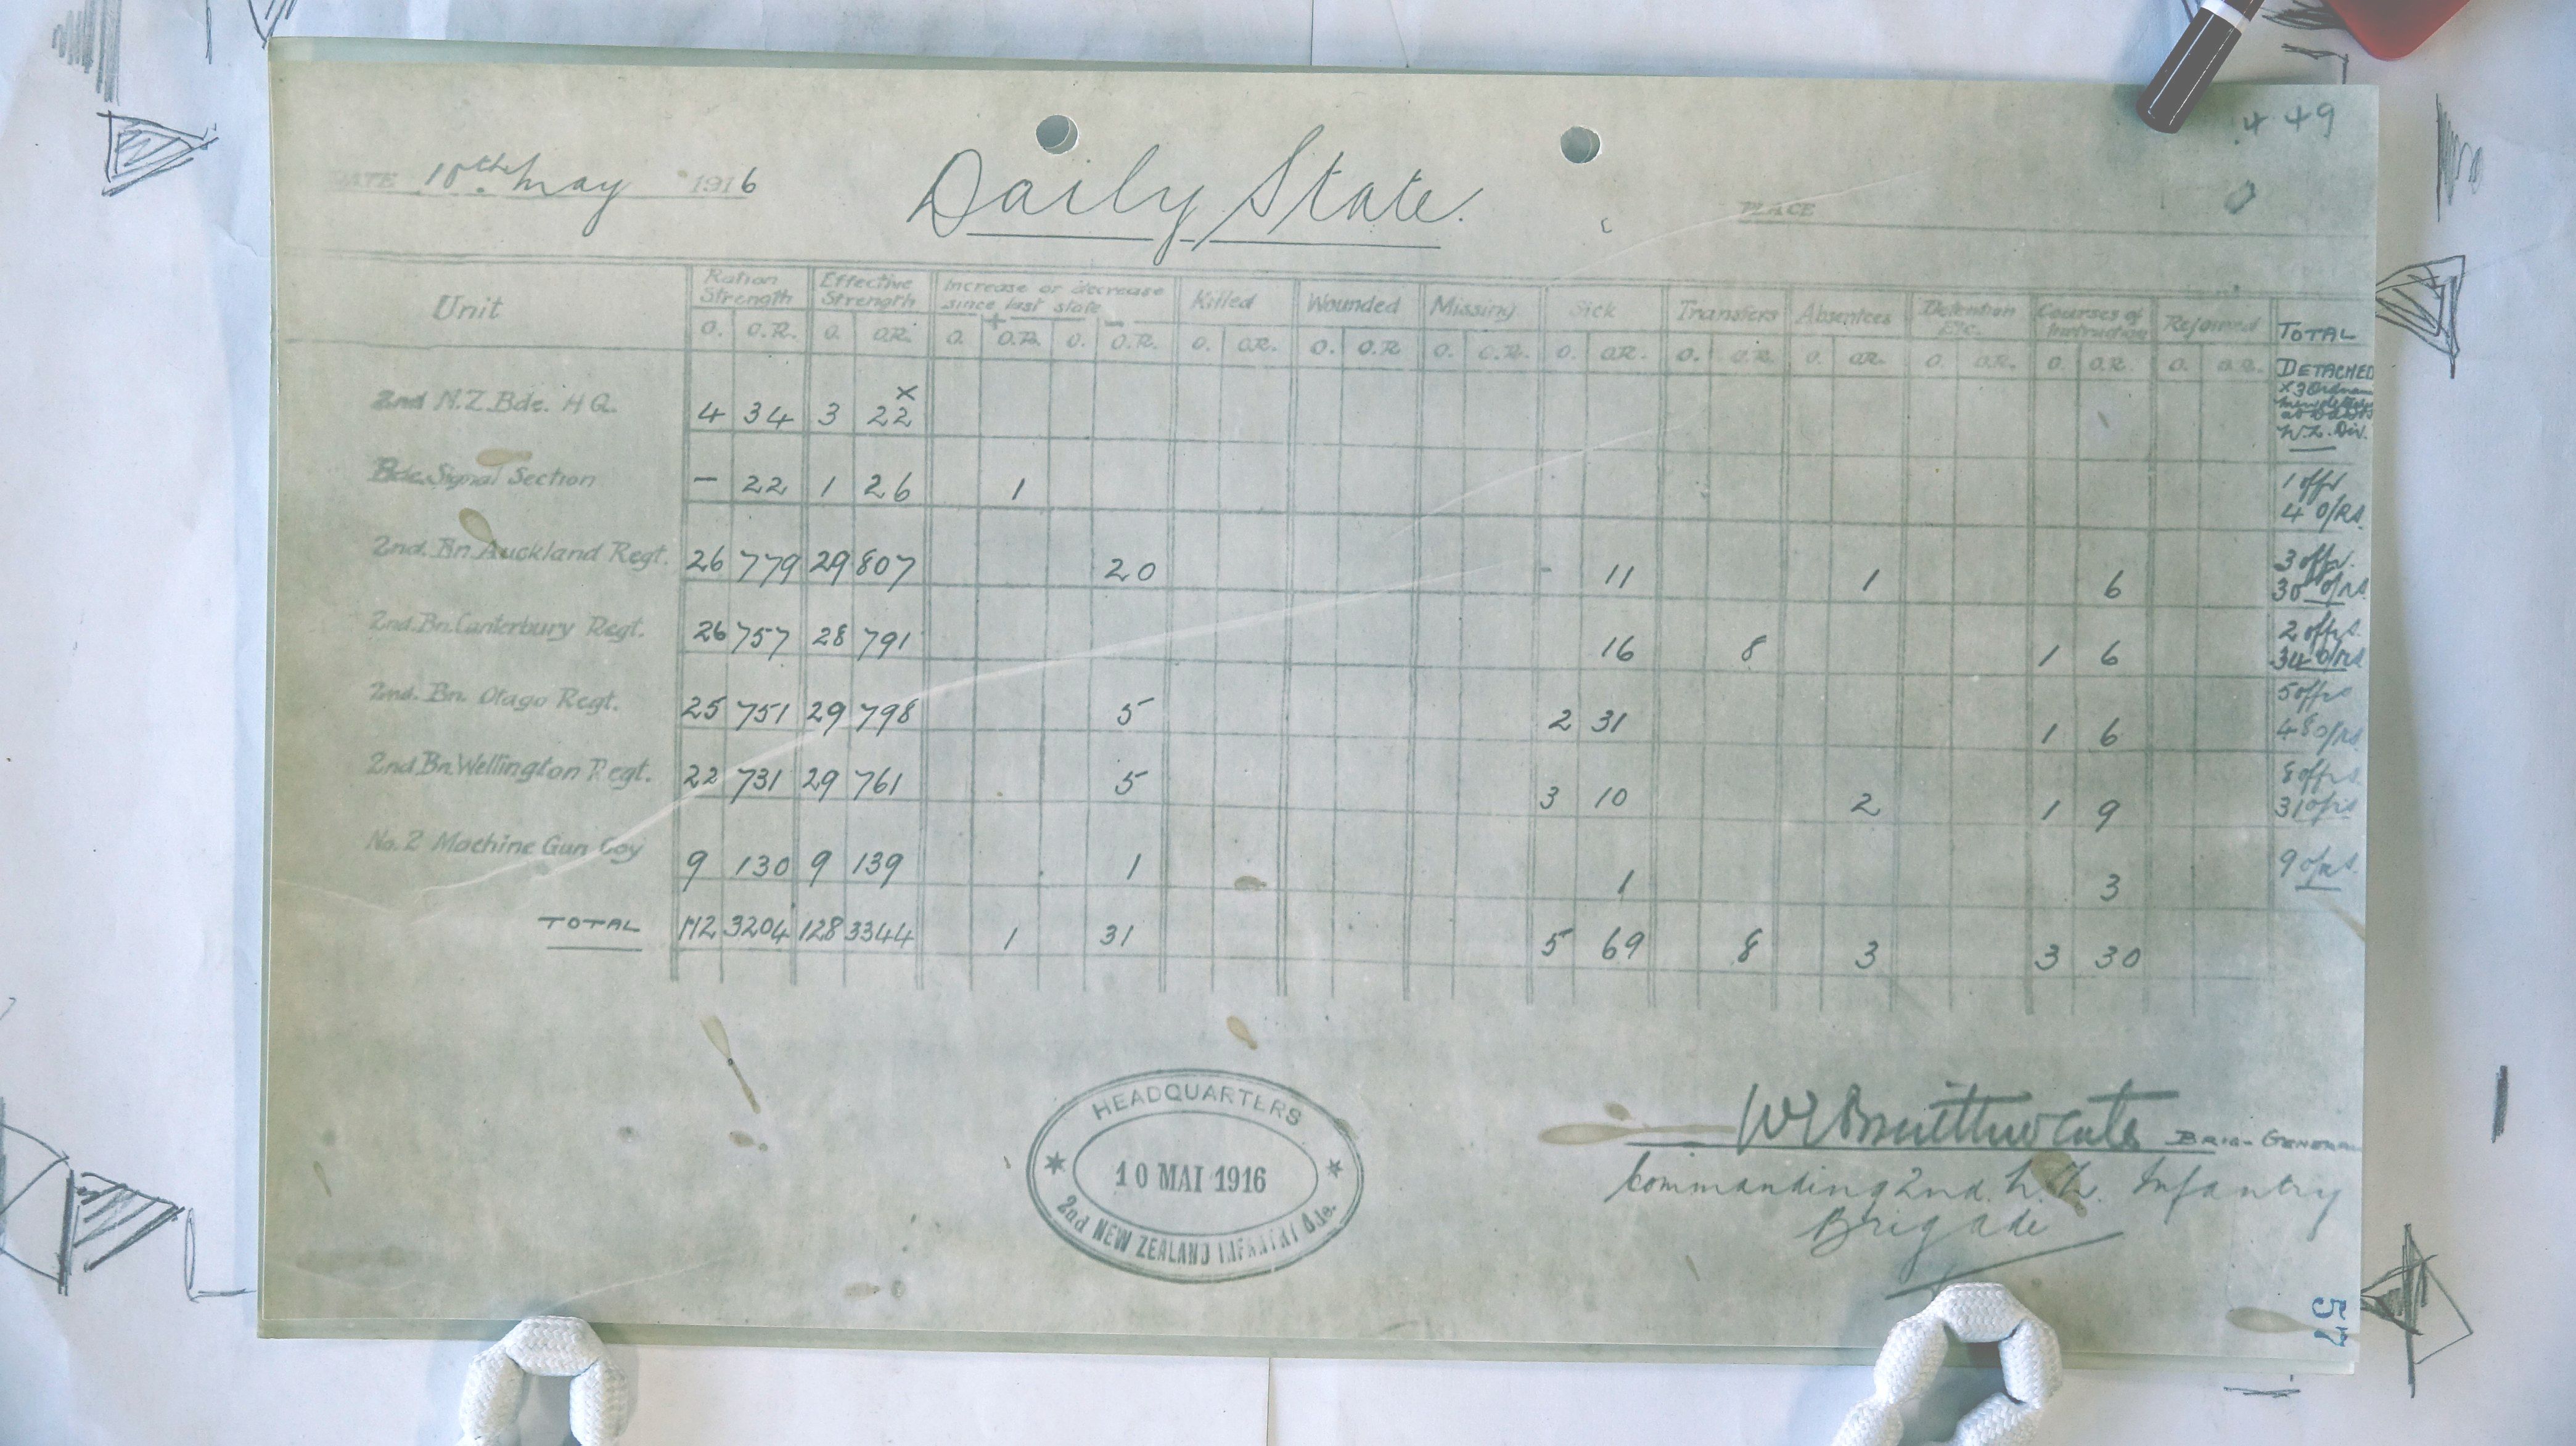 449
DATE 10th May 1916
Daily State.
PLACE
Unit Ration Strength Effective Strength Increase or decrease since last state + - Killed Wounded Missing Sick Transfers Absentees Detention Etc. Courses of Instruction Rejoined TOTAL DETACHED
O. O.R. O. O.R. O. O.R. O. O.R. O. O.R. O. O.R O. O.R. O. O.R. O. O.R. O. O.R. O. O.R. O. O.R. O. O.R.
2nd N.Z. Bde. H Q. 4 34 3 22 x x 3 N.Z. Div.
Bde. Signal Section — 22 1 26 1 1 offr 4 O/Rs.
2nd. Bn. Auckland Regt. 26 779 29 807 20 - 11 1 6 3 offr. 30 o/rs.
2nd. Bn. Canterbury Regt. 26 757 28 791 16 8 1 6 2 offrs. 34 o/rs
2nd. Bn. Otago Regt. 25 751 29 798 5 2 31 1 6 5 offrs 48 o/rs
2nd Bn. Wellington Regt. 22 731 29 761 5 3 10 2 1 9 8 offrs. 31 o/rs
No. 2 Machine Gun Coy 9 130 9 139 1 1 3 9 o/rs.
TOTAL 112 3204 128 3344 1 31 5 69 8 3 3 30
HEADQUARTERS
10 MAI 1916
2nd NEW ZEALAND INFANTRY Bde.
W Braithwaite BRIG-GENERAL
Commanding 2nd. N. Z. Infantry
Brigade
57